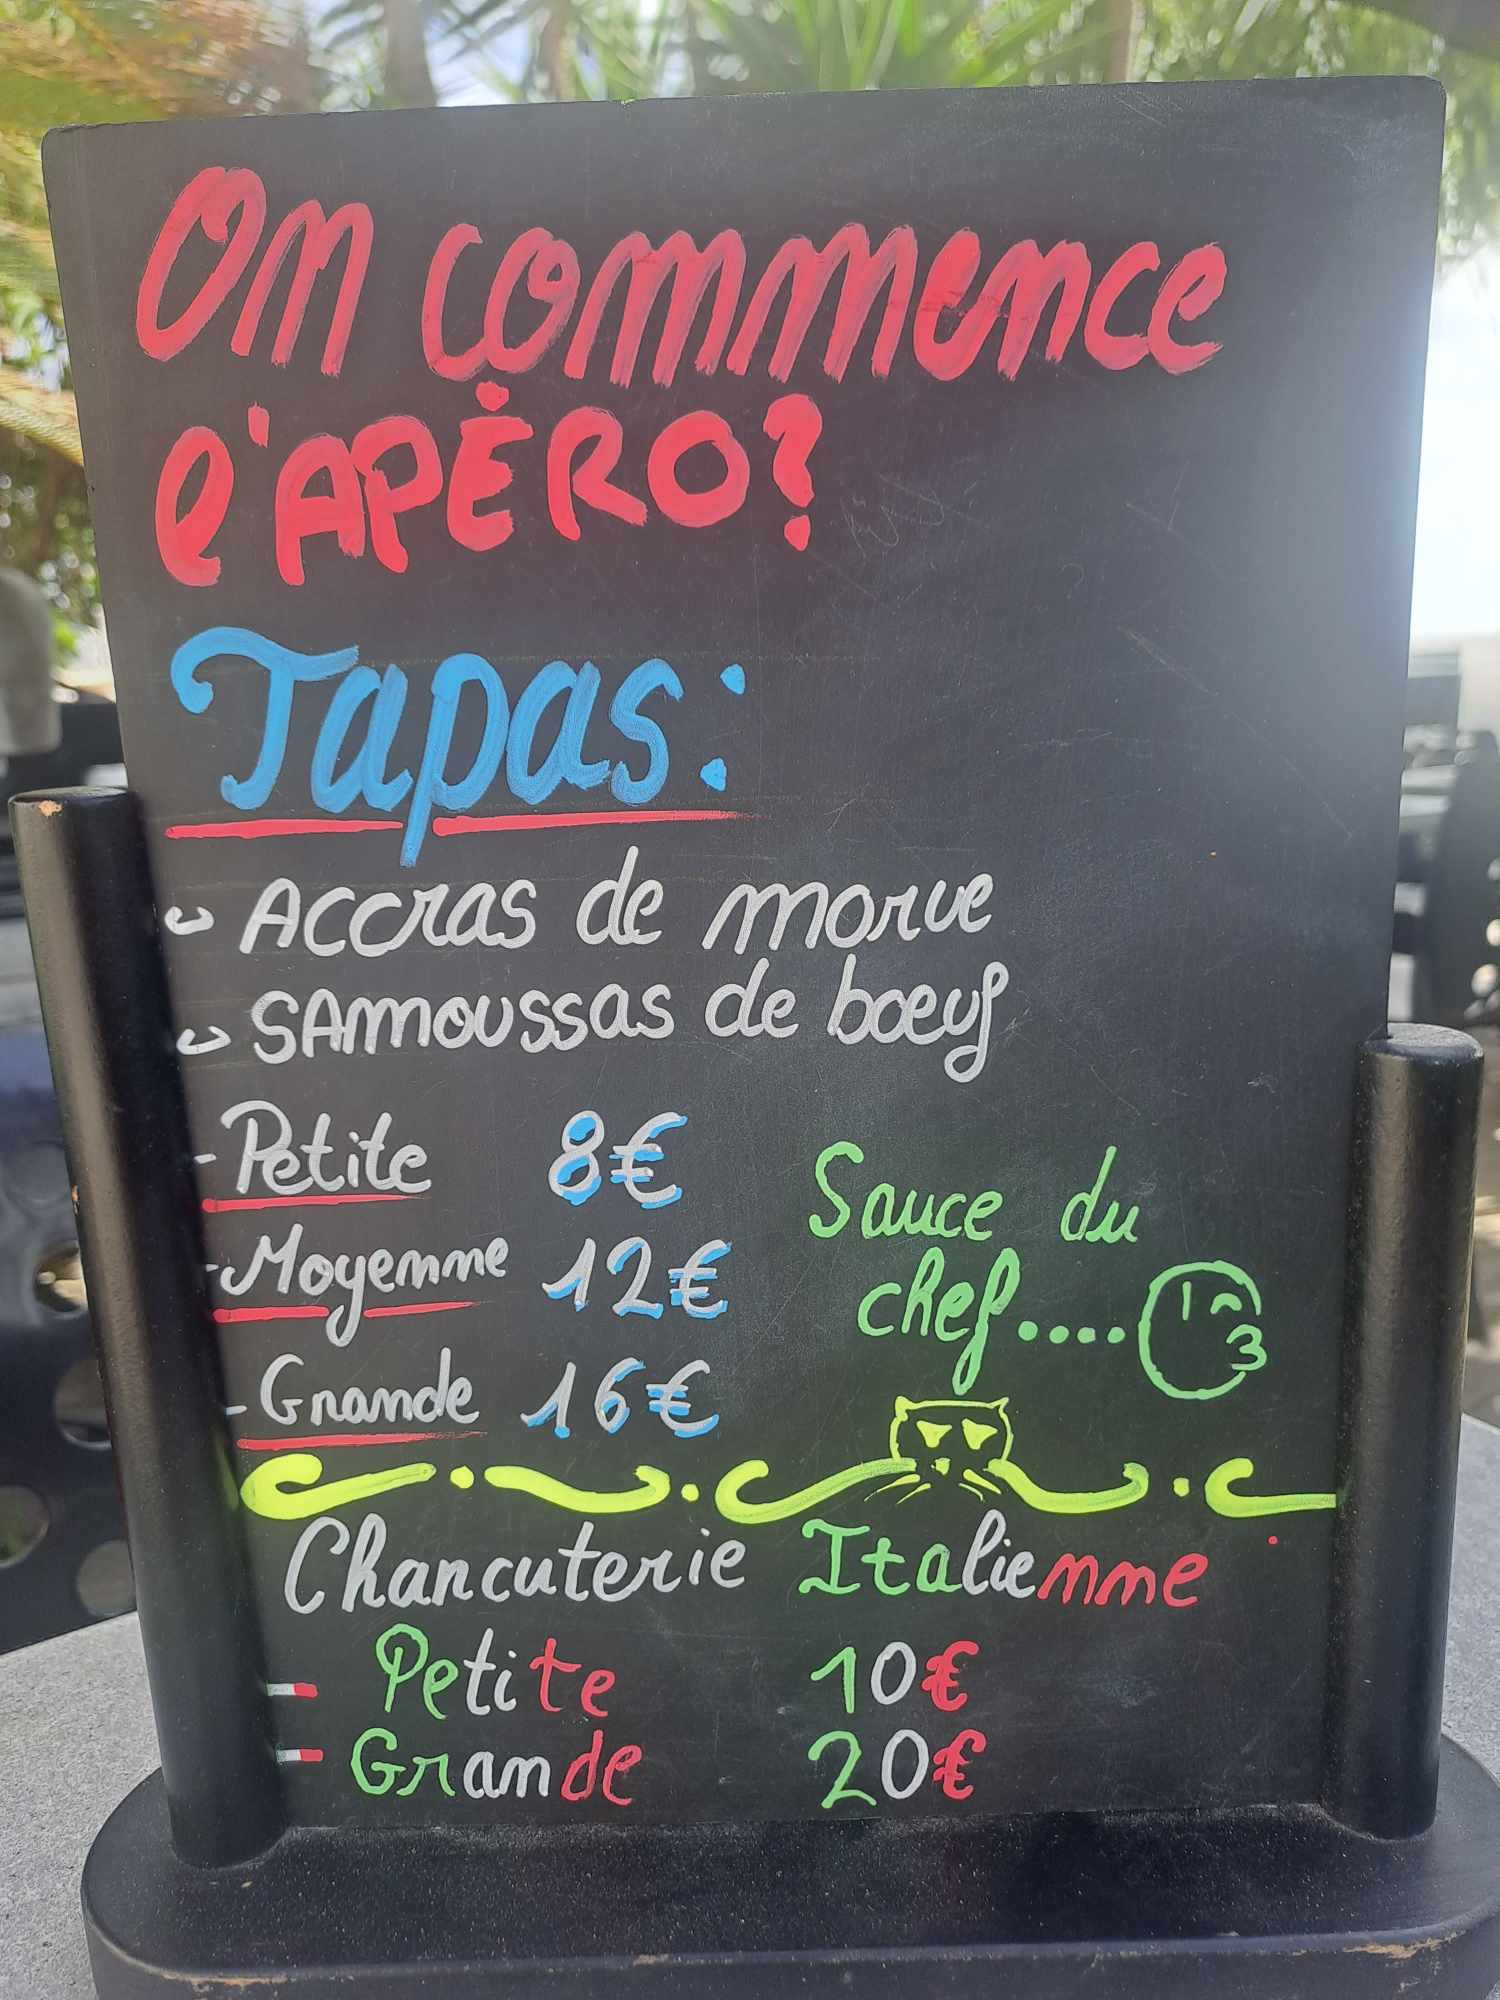 On commence
l'APÉRO?
Tapas:
ACCras de morue
SAmoussas de bœuf
- Petite 8€
- Moyenne 12€
- Grande 16€
Sauce du
chef....
Charcuterie Italienne
Petite 10€
Grande 20€